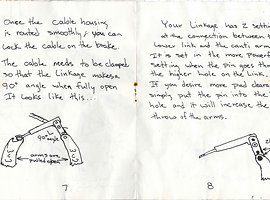 Once the cable housing
is routed smoothly, you can
lock the cable on the brake.
The cable needs to be clamped
so that the linkage makes a
90° angle when fully open
It looks like this...
90°
angle
arms are
pulled open
7
Your Linkage has 2 setting
at the connection between t
lower link and the canti arm
It is set in the more powerf
setting when the pin goes thr
the higher hole on the link.
If you desire more pad clearan
simply put the pin into the
hole and it will increase the
throw of the arms.
8